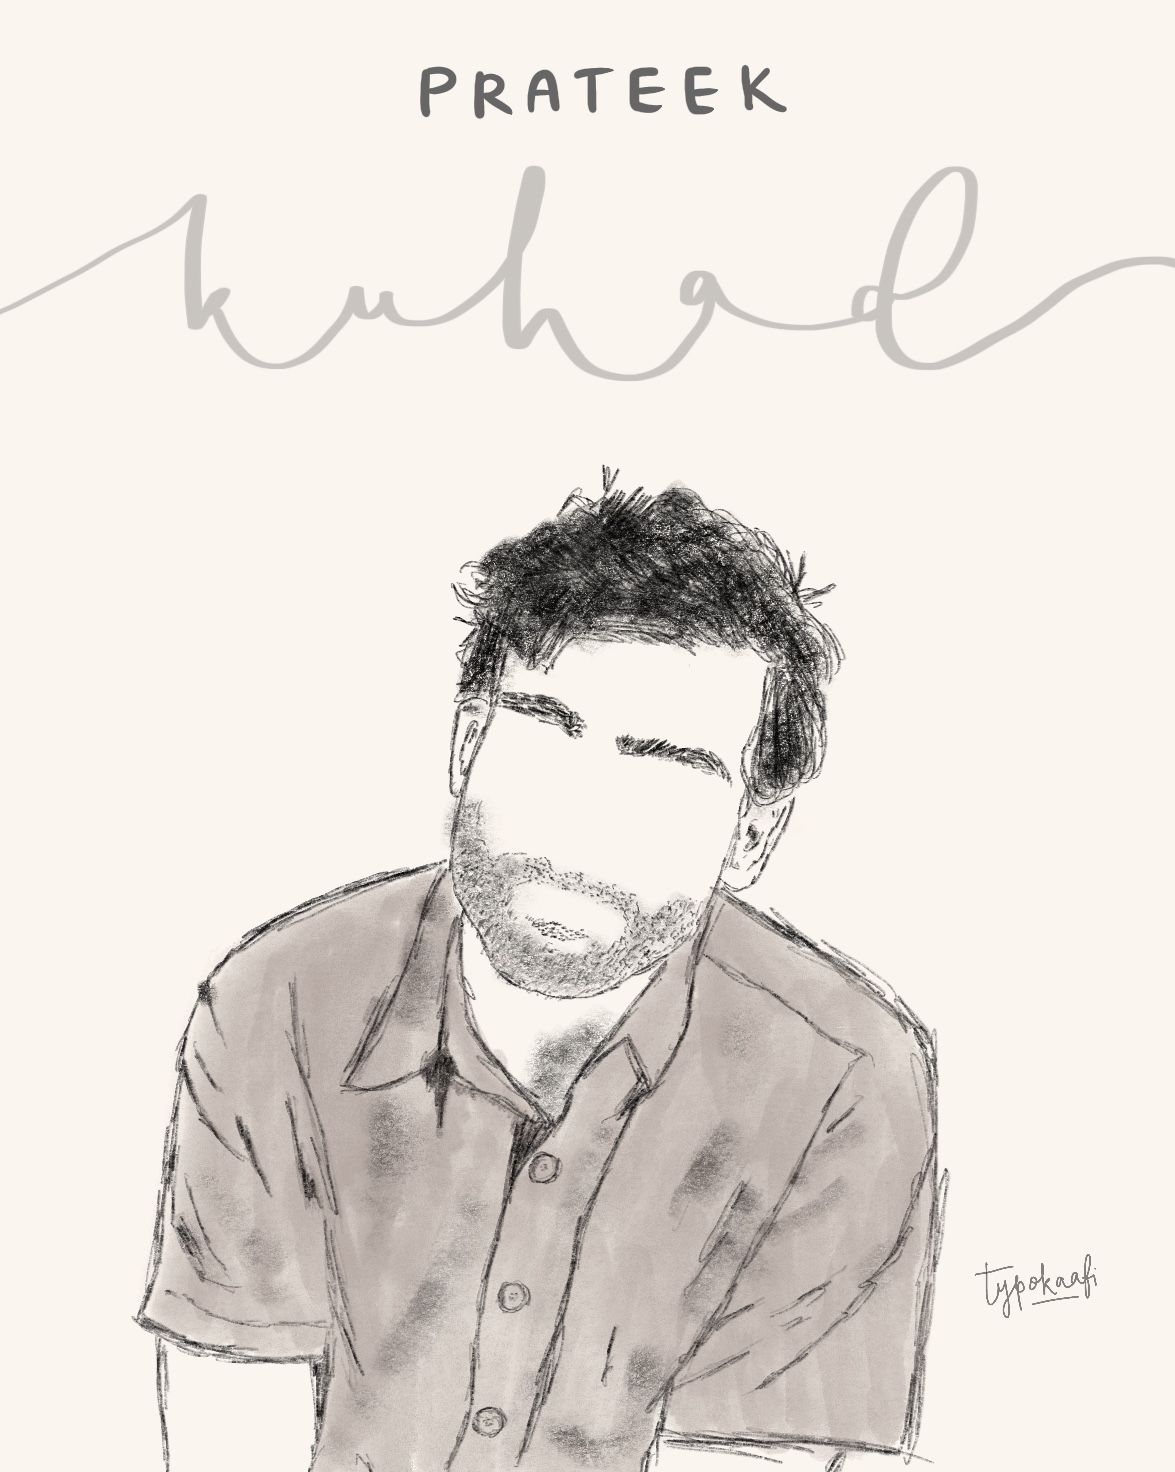 PRATEEK
kuhad
typokaafi